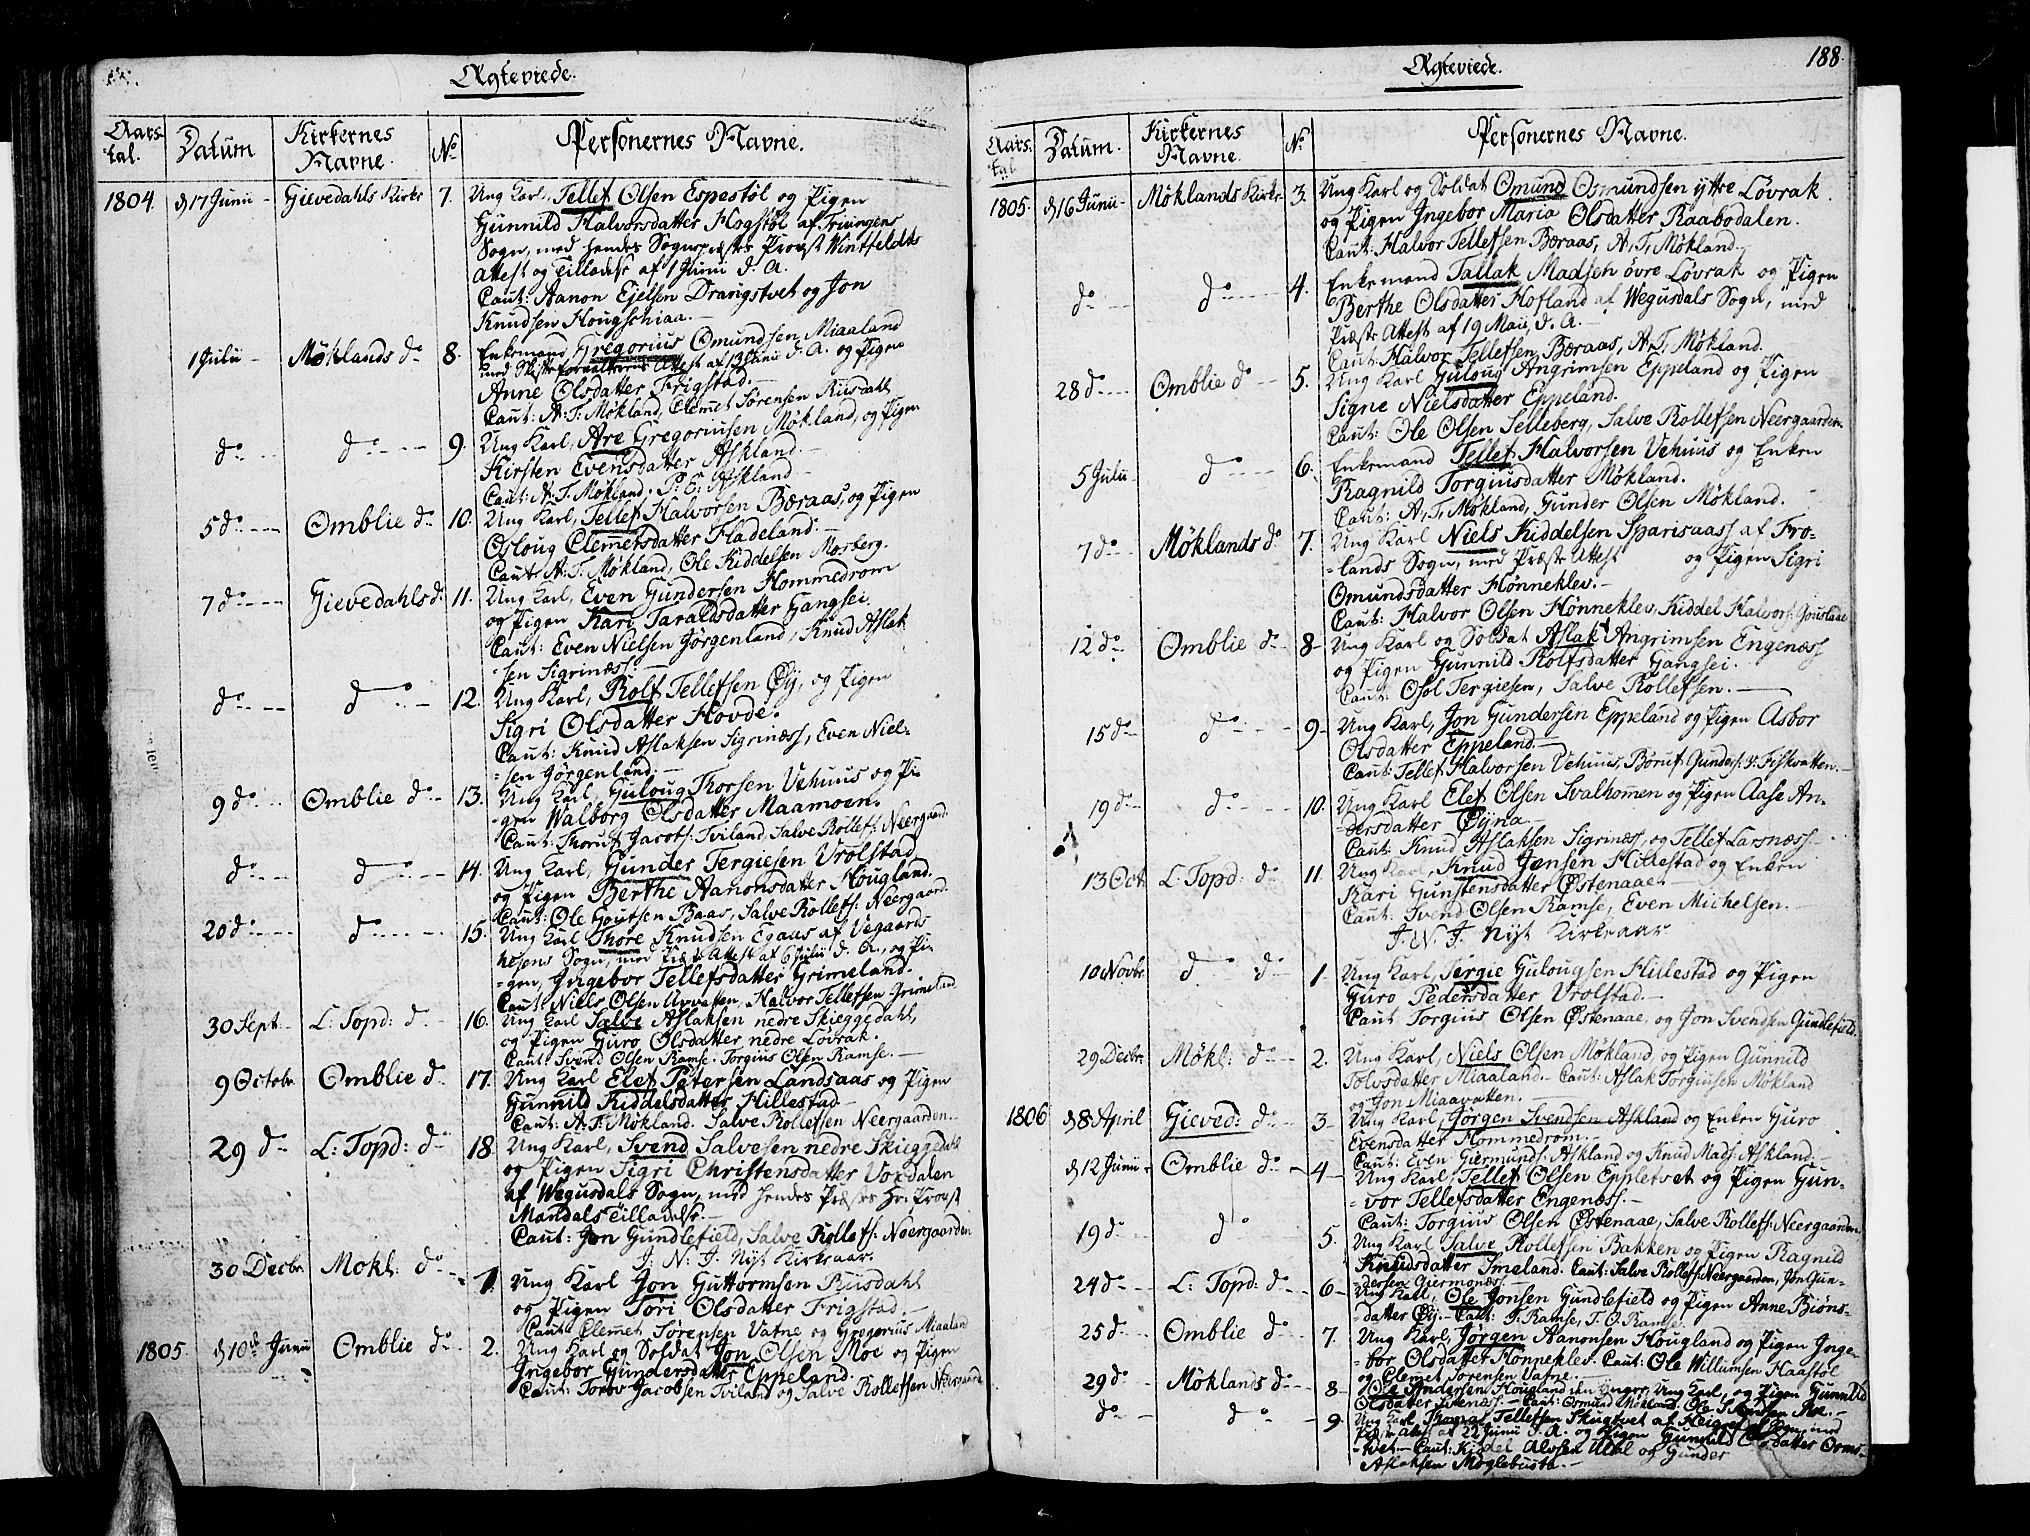 Ægteviede.
Aars-tal. Datum Kirkernes Navne. No Personernes Navne.
1804 d 17 Junii - Gievedahls Kirke 7. Ung Karl, Tellef Olsen Espestøl og Pigen
Gunnild Halvorsdatter Hogstøl af
Sogn, med hendes Sognepræstes Provst Wintfeldts
Attest og Tilladelse af 1 Junii d. A.
Caut: Aanon Ejelsen Drangstvet og Jon
Knudsen
1 Julii - Møklands do 8. Enkemand Gregorius Omundsen Miaaland
med Skifteforvalterens Attest af 13 Junii d. A. og Pigen
Anne Olsdatter Frigstad.
Caut: A. T. Møkland, Clemet Sørensen Riisdahl
do do 9. Ung Karl, Are Gregoriusen Møkland, og Pigen
Kirsten Evensdatter Askland.
Caut: A. T. Møkland. P. E. Askland
5 do Omblie do 10. Ung Karl, Tellef Halvorsen Bæraas, og Pigen
Osloug Clemetsdatter Fladeland.
Caut: A. T. Møkland, Ole Kiddelsen Mosberg.
7 do Gievedahls do 11. Ung Karl, Even Gundersen Hommedrom
og Pigen Kari Taraldsdatter Gangsei
Caut: Even Nielsen Jørgenland, Knud Aslak-
-sen Sigrinæss.
do do 12. Ung Karl, Rolf Tellefsen Øy, og Pigen
Sigri Olsdatter Hovde.
Caut: Knud Aslaksen Sigrinæss, Even Niel-
-sen Jørgenland.
9 do Omblie do 13. Ung Karl Guloug Thorsen Vehuus og Pi-
-gen Walborg Olsdatter Maamoen.
Caut: Thoruf Jacobs: Tviland, Salve Rollefs: Neergaard
do do 14. Ung Karl, Gunder Tergiesen Vrolstad
og Pigen Berthe Aanonsdatter Hougland.
Caut: Ole Goutsen Baas, Salve Rollefs: Neergaard.
20 do do 15. Ung Karl Thore Knudsen Egaas af Vegaards
hejens Sogn, med Præste Attest af 6 Julii d. A., og Pi-
-gen, Ingebor Tellefsdatter Grimeland.
Caut: Niels Olsen Upvatten, Halvor Tellefsen Grimeland
30 Sept L: Topd: do 16. Ung Karl Salve Aslaksen nedre Skieggedahl,
og Pigen Guro Olsdatter nedre Løvrak.
Caut: Svend Olsen Ramse. Torgius Olsen Ramse.
9 Octobr Omblie do 17. Ung Karl Elef Petersen Landsaas og Pigen
Gunnild Kiddelsdatter Hillestad
Caut: A. T. Møkland. Salve Rollefsen Neergaarden.
29 do L: Topd: do 18. Ung Karl, Svend Salvesen nedre Skieggedahl
og Pigen Sigri Christensdatter Vokdalen
af Wegusdals Sogn, med hendes Præstes Hr: Provst
Mandals Tilladelse.
Caut: Jon Gundlefield, Salve Rollefs: Neergaarden
J: N: J. Nyt Kirkeaar.
30 Decbr. Mokl: do 1. Ung Karl Jon Guttormsen Riisdahl
og Pigen Tori Olsdatter Frigstad.
Caut: Clemet Sørensen Vatne og Gregorius Miaaland
1805 d 10de Junii Omblie do 2. Ung Karl og Soldat Jon Olsen Moe og Pigen
Ingebor Gundersdatter Eppeland.
Caut: Torov Jacobsen Tviland og Salve Rollefsen Neergaard
Ægteviede. 188.
Aars-tal Datum. Kirkernes Navne. No Personernes Navne.
1805. d 16 Junii Møklands Kirke 3. Ung Karl og Soldat Omund Osmundsen yttre Løvrak.
og Pigen Ingebor Maria Olsdatter Raabodalen.
Caut: Halvor Tellefsen Bæraas, A. T. Møkland.
do do 4. Enkemand Tallak Madsen øvre Løvrak og Pigen
Berthe Olsdatter Hofland af Wegusdals Sogn, med
Præste Attest af 19 Maii, d. A.
Caut: Halvor Tellefsen Bæraas, A. T. Møkland.
28 do Omblie do 5. Ung Karl Guloug Angrimsen Eppeland og Pigen
Signe Nielsdatter Eppeland.
Caut: Ole Olsen Selleberg, Salve Rollefsen Neergaarden
5 Julii do 6. Enkemand Tellef Halvorsen Vehuus og Enken
Ragnild Torgiusdatter Møkland.
Caut: A. T. Møkland, Gunder Olsen Møkland.
7 do Møklands do 7. Ung Karl Niels Kiddelsen Sparisaass af Fro-
-lands Sogn, med Præste Attest og Pigen Sigri
Omundsdatter Hønneklev.
Caut: Halvor Olsen Hønneklev, Kiddel Halvors:
12 do Omblie do 8 Ung Karl og Soldat Aslak Angrimsen Engenæss
og Pigen Gunnild Rolfsdatter Gangsei.
Caut: Osol Tergiesen, Salve Rollefsen.
15 do do 9 Ung Karl, Jon Gundersen Eppeland og Pigen Asbor
Olsdatter Eppeland.
Caut: Tellef Halvorsen Vehuus, Boruf Gunders: Fiskvatten.
19 do do 10. Ung Karl Elef Olsen Svalhommen og Pigen Aase An-
-dersdatter Øyna.
Caut: Knud Aslaksen Sigrinæss, og Tellef Larsnæss.
13 Oct L: Topd: do 11 Ung Karl, Knud Jensen Hillestad og Enken
Kari Gunstensdatter Østenaae.
Caut: Svend Olsen Ramse, Even Michelsen.
J. N. J. Nyt Kirkeaar
10 Novbr. do do 1 Ung Karl, Tergie Gulougsen Hillestad og Pigen
Guro Pedersdatter Vrolstad.
Caut Torgius Olsen Østenaae, og Jon Svendsen Gundlefield.
29 Decbr. Møkl: do 2. Ung Karl, Niels Olsen Møkland, og Pigen Gunnild
Tolvsdatter Miaaland. Caut: Aslak Torgiusen Møkland
og Jon Miaavatten.
1806 d 8 April Gieved: do 3 Ung Karl, Jørgen Svendsen Askland og Enken Guro
Evensdatter Hommedrom.
Caut: Even Giermunds: Askland og Knud Mads: Askland.
d 12 Junii Omblie do 4 Ung Karl, Tellef Olsen Eppletvet og Pigen Gun-
-vor Tellefsdatter Engenæss.
Caut: Torgius Olsen Østenaae, Salve Rollefs: Neergaarden.
19 do do 5. Ung Karl Salve Rollefsen Bakken og Pigen Ragnild
Knudsdatter Smeland. Caut: Salve Rollefs: Neergaarden, Jon Gun-
-dersen Giermonæss.
24 do L: Topd: do 6 Ung Karl, Ole Jonsen Gundlefield og Pigen Anne Biøns-
-datter Øy. Caut: J. Ramse, T. O. Ramse.
25 do Omblie do 7. Ung Karl, Jørgen Aanonsen Hougland og Pigen Inge-
-bor Olsdatter Hønneklev. Caut: Ole Willumsen Haastøl
og Clemet Sørensen Vatne.
29 do Møklands do 8 Ole Andersen Hougland den Yngre, Ung Karl, og Pigen Gunnild
Olsdatter Svenæss. Caut: Osmund Møkland. Ole
do do 9 Ung Karl Thomas Tellefsen Skugtvet af Sogn, med
Præste Attest af 22 Junii d. A. og Pigen Gunnild Olsdatter Orms-
-tvet Caut: Kiddel Alvsen Ubbl og Gunder
Aslaksen Moglebustø.